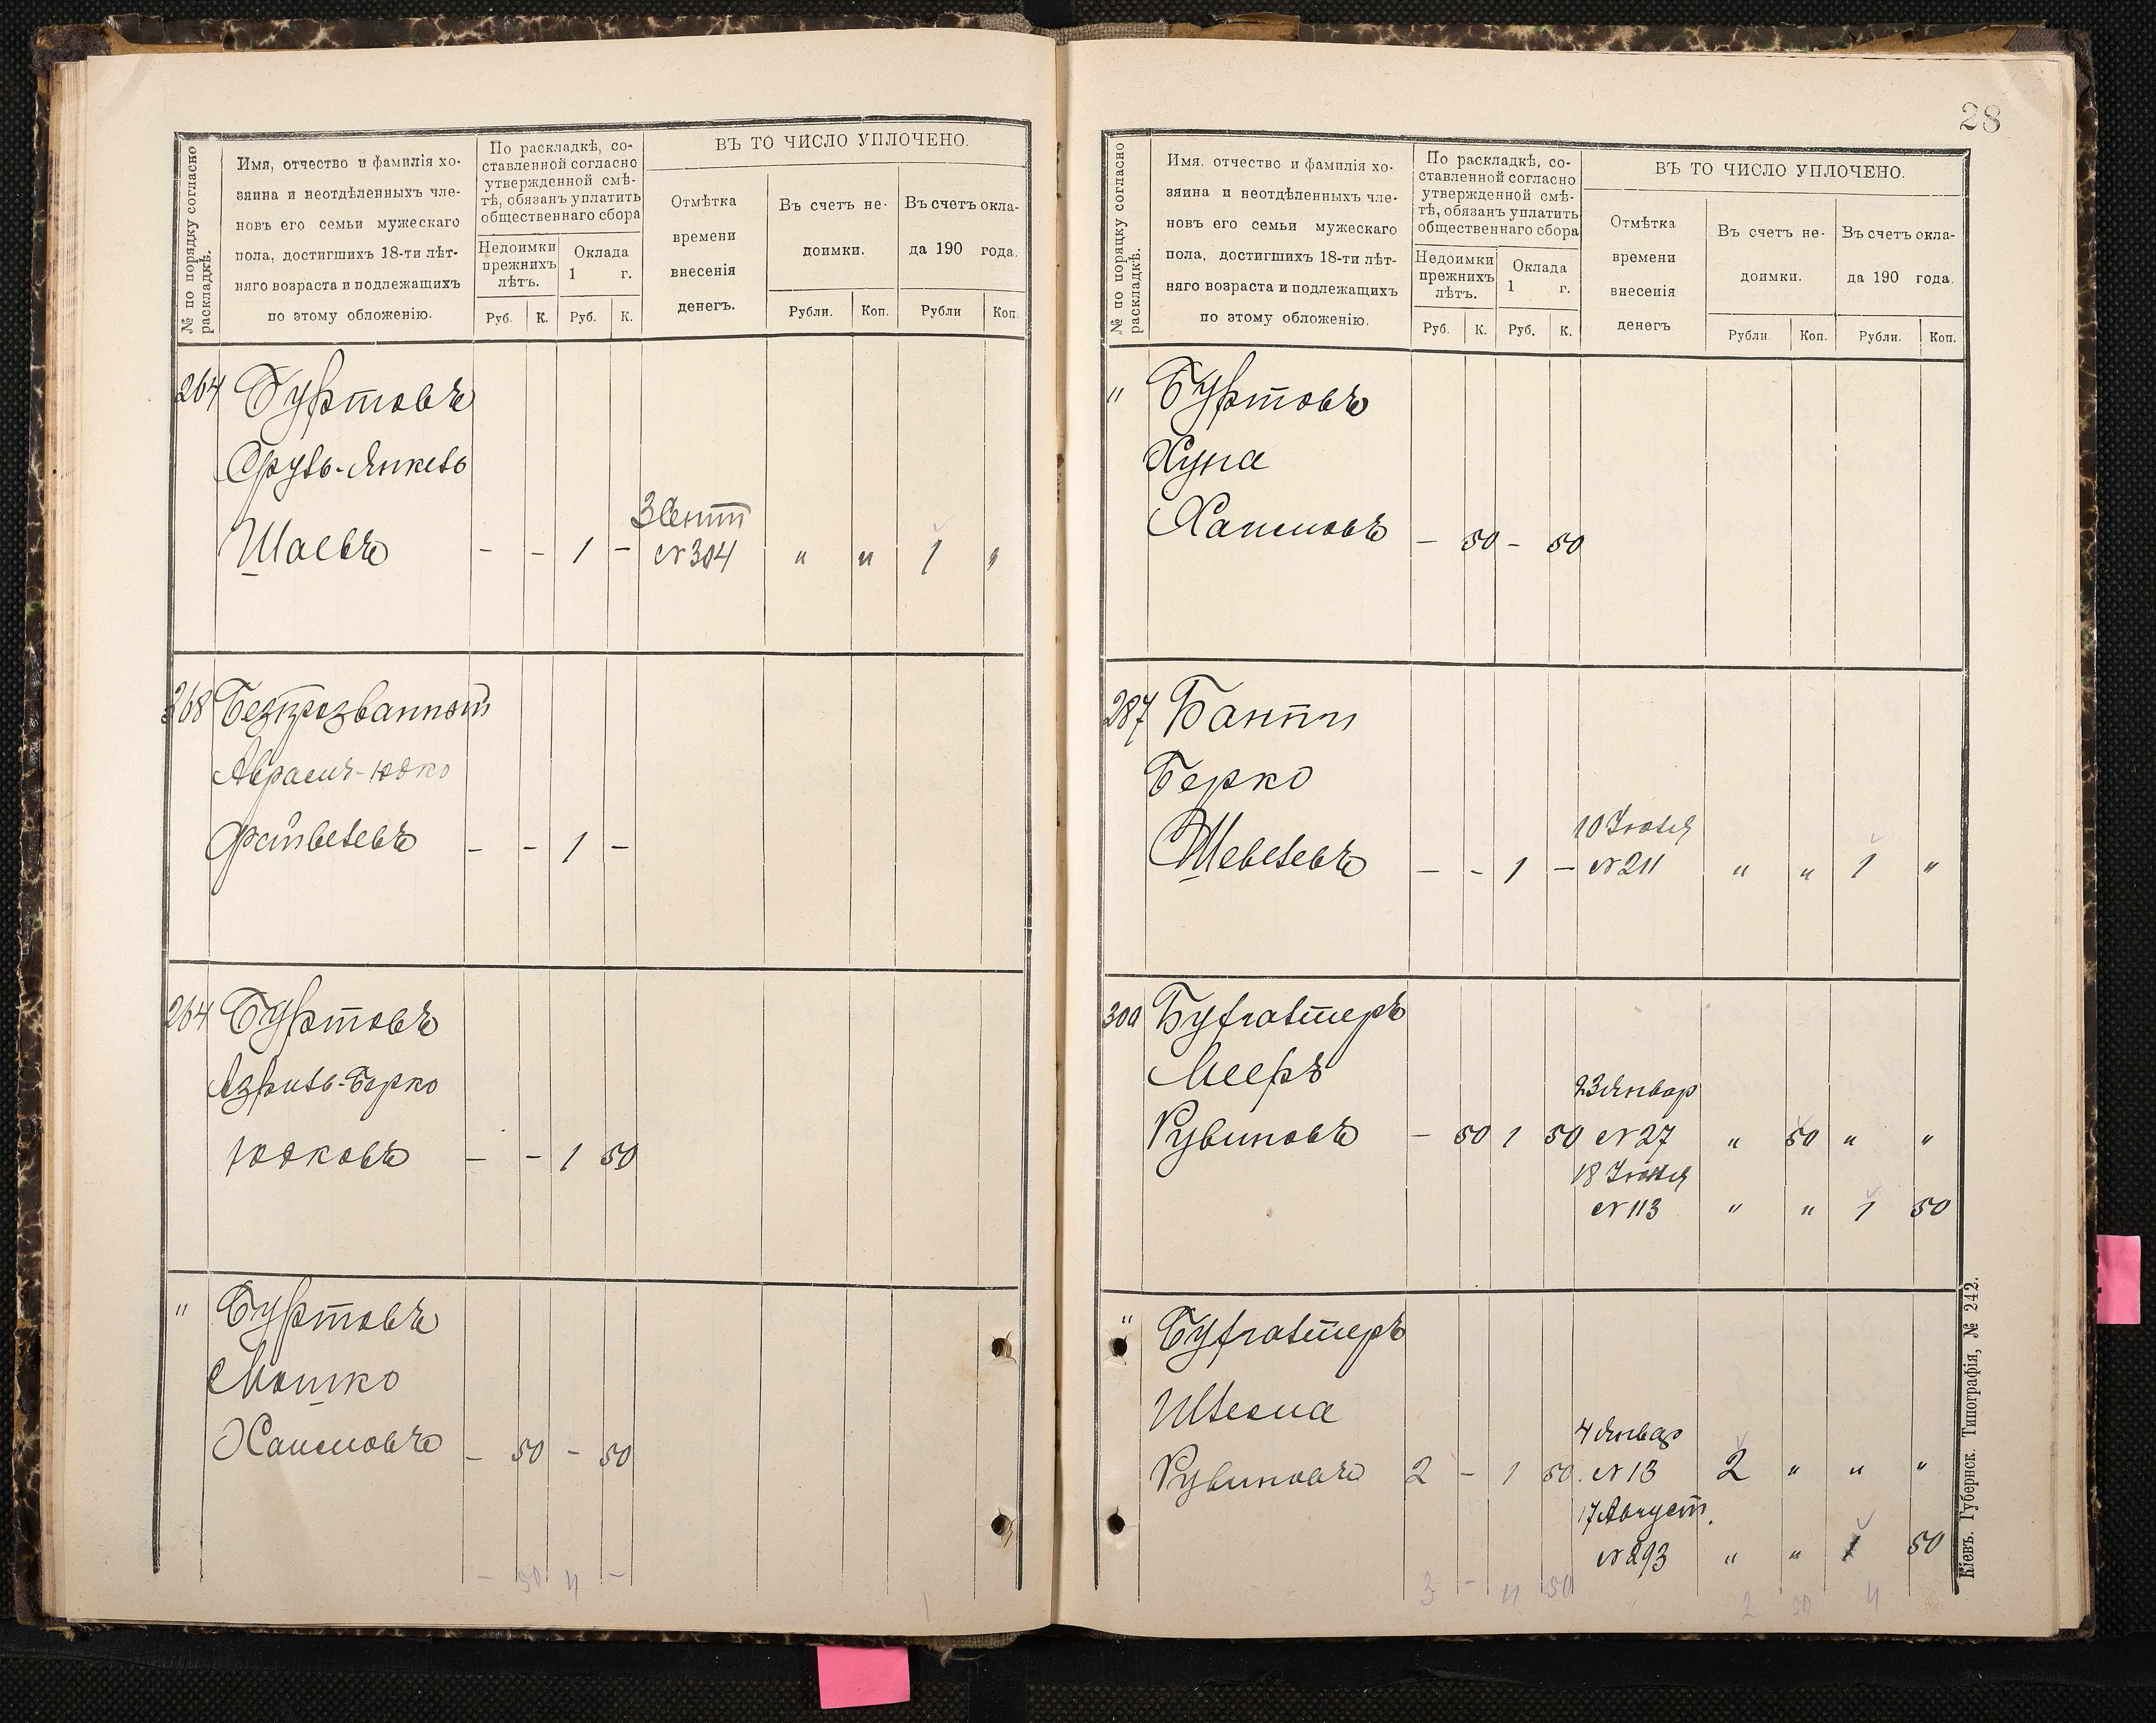 № по порядку согласно раскладкѣ.
Имя, отчество и фамилія хо-
зяина и неотдѣленныхъ чле-
новъ его семьи мужескаго
пола, достигшихъ 18-ти лѣт-
няго возраста и подлежащихъ
по этому обложенію.
По раскладкѣ, со-
ставленной согласно
утвержденной смѣ-
тѣ, обязанъ уплатить
общественнаго сбора
Недоимки
прежнихъ
лѣтъ.
Оклада
1 г.
Руб. К. Руб. К.
ВЪ ТО ЧИСЛО УПЛОЧЕНО.
Отмѣтка
времени
внесенія
денегъ.
Въ счетъ не-
доимки.
Въ счетъ окла-
да 190 года.
Рубли. Коп. Рубли Коп.
264 Буртовъ
Сруль-Янкель
3 Сент
Шаевъ - - 1 - №304 " " 1 "
268 Безпрозванный
Аврамъ-Юдко
Файвелевъ - - 1 -
264 Буртовъ
Азриль-Берко
Юдковъ - - 1 50
" Буртовъ
Мошко
Хаимовъ - 50 - 50
- 50 4 - 1
28
№ по порядку согласно раскладкѣ.
Имя, отчество и фамилія хо-
зяина и неотдѣленныхъ чле-
новъ его семьи мужескаго
пола, достигшихъ 18-ти лѣт-
няго возраста и подлежащихъ
по этому обложенію.
По раскладкѣ, со-
ставленной согласно
утвержденной смѣ-
тѣ, обязанъ уплатить
общественнаго сбора
Недоимки
прежнихъ
лѣтъ.
Оклада
1 г.
Руб. К. Руб. К.
ВЪ ТО ЧИСЛО УПЛОЧЕНО.
Отмѣтка
времени
внесенія
денегъ
Въ счетъ не-
доимки.
Въ счетъ окла-
да 190 года.
Рубли. Коп. Рубли. Коп.
" Буртовъ
Хуна
Хаимовъ - 50 - 50
287 Банти
Берко
10 Іюля
Шевелевъ - - 1 - №211 " " 1 "
300 Бухгалтеръ
Мееръ
23 Январ
Рувиновъ - 50 1 50 №27 " 50 " "
18 Іюля
№113 " " 1 50
" Бухгалтеръ
Шлема
4 Январ
Рувиновъ 2 - 1 50 №13 2 " " "
17 Август.
№293 " " 1 50
3 - 4 50 2 50 4
Кіевъ. Губернск. Типографія, № 242.